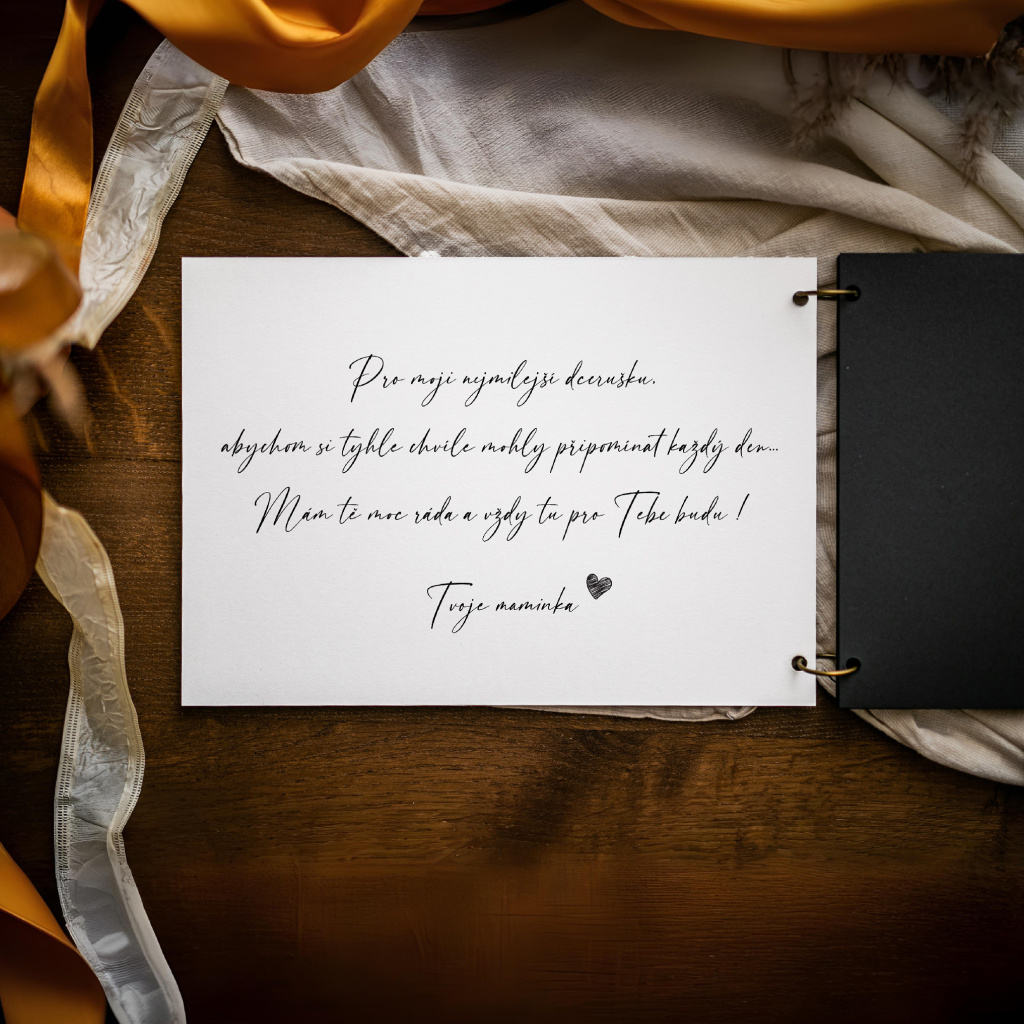 Pro moji nejmilejší dcerušku,
abychom si tyhle chvíle mohly připomínat každý den...
Mám tě moc ráda a vždy tu pro Tebe budu !
Tvoje maminka